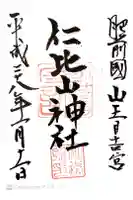 肥前國 山王日吉宮
仁比山神社
平成二八年一月三日